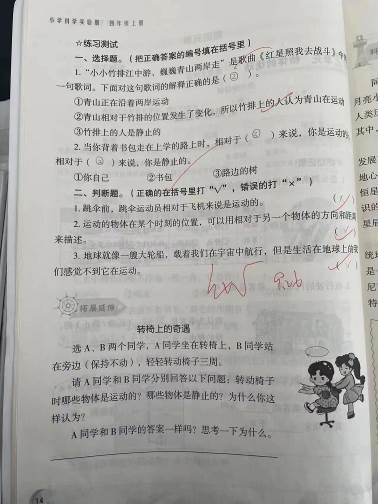 小学科学实验册 四年级上册
☆练习测试
一、选择题。（把正确答案的编号填在括号里）
1. “小小竹排江中游，巍巍青山两岸走”是歌曲《红星照我去战斗》中的
一句歌词。下面对这句歌词的解释正确的是（②）。
①青山正在沿着两岸运动
②青山相对于竹排的位置发生了变化，所以竹排上的人认为青山在运动
③竹排上的人是静止的
2. 当你背着书包走在上学的路上时，相对于（③）来说，你是运动的
相对于（②）来说，你是静止的。
①你自己 ②书包 ③路边的树
二、判断题。（正确的在括号里打“√”，错误的打“×”）
1. 跳伞前，跳伞运动员相对于飞机来说是运动的。
2. 运动的物体在某个时刻的位置，可以用相对于另一个物体的方向和距离
来描述。
3. 地球就像一艘大轮船，载着我们在宇宙中航行，但是生活在地球上的我
们感觉不到它在运动。
拓展延伸
转椅上的奇遇
选 A、B 两个同学，A 同学坐在转椅上，B 同学站
在旁边（保持不动），轻轻转动椅子三周。
请 A 同学和 B 同学分别回答以下问题：转动椅子
时哪些物体是运动的？哪些物体是静止的？为什么你这
样认为？
A 同学和 B 同学的答案一样吗？思考一下为什么。
14